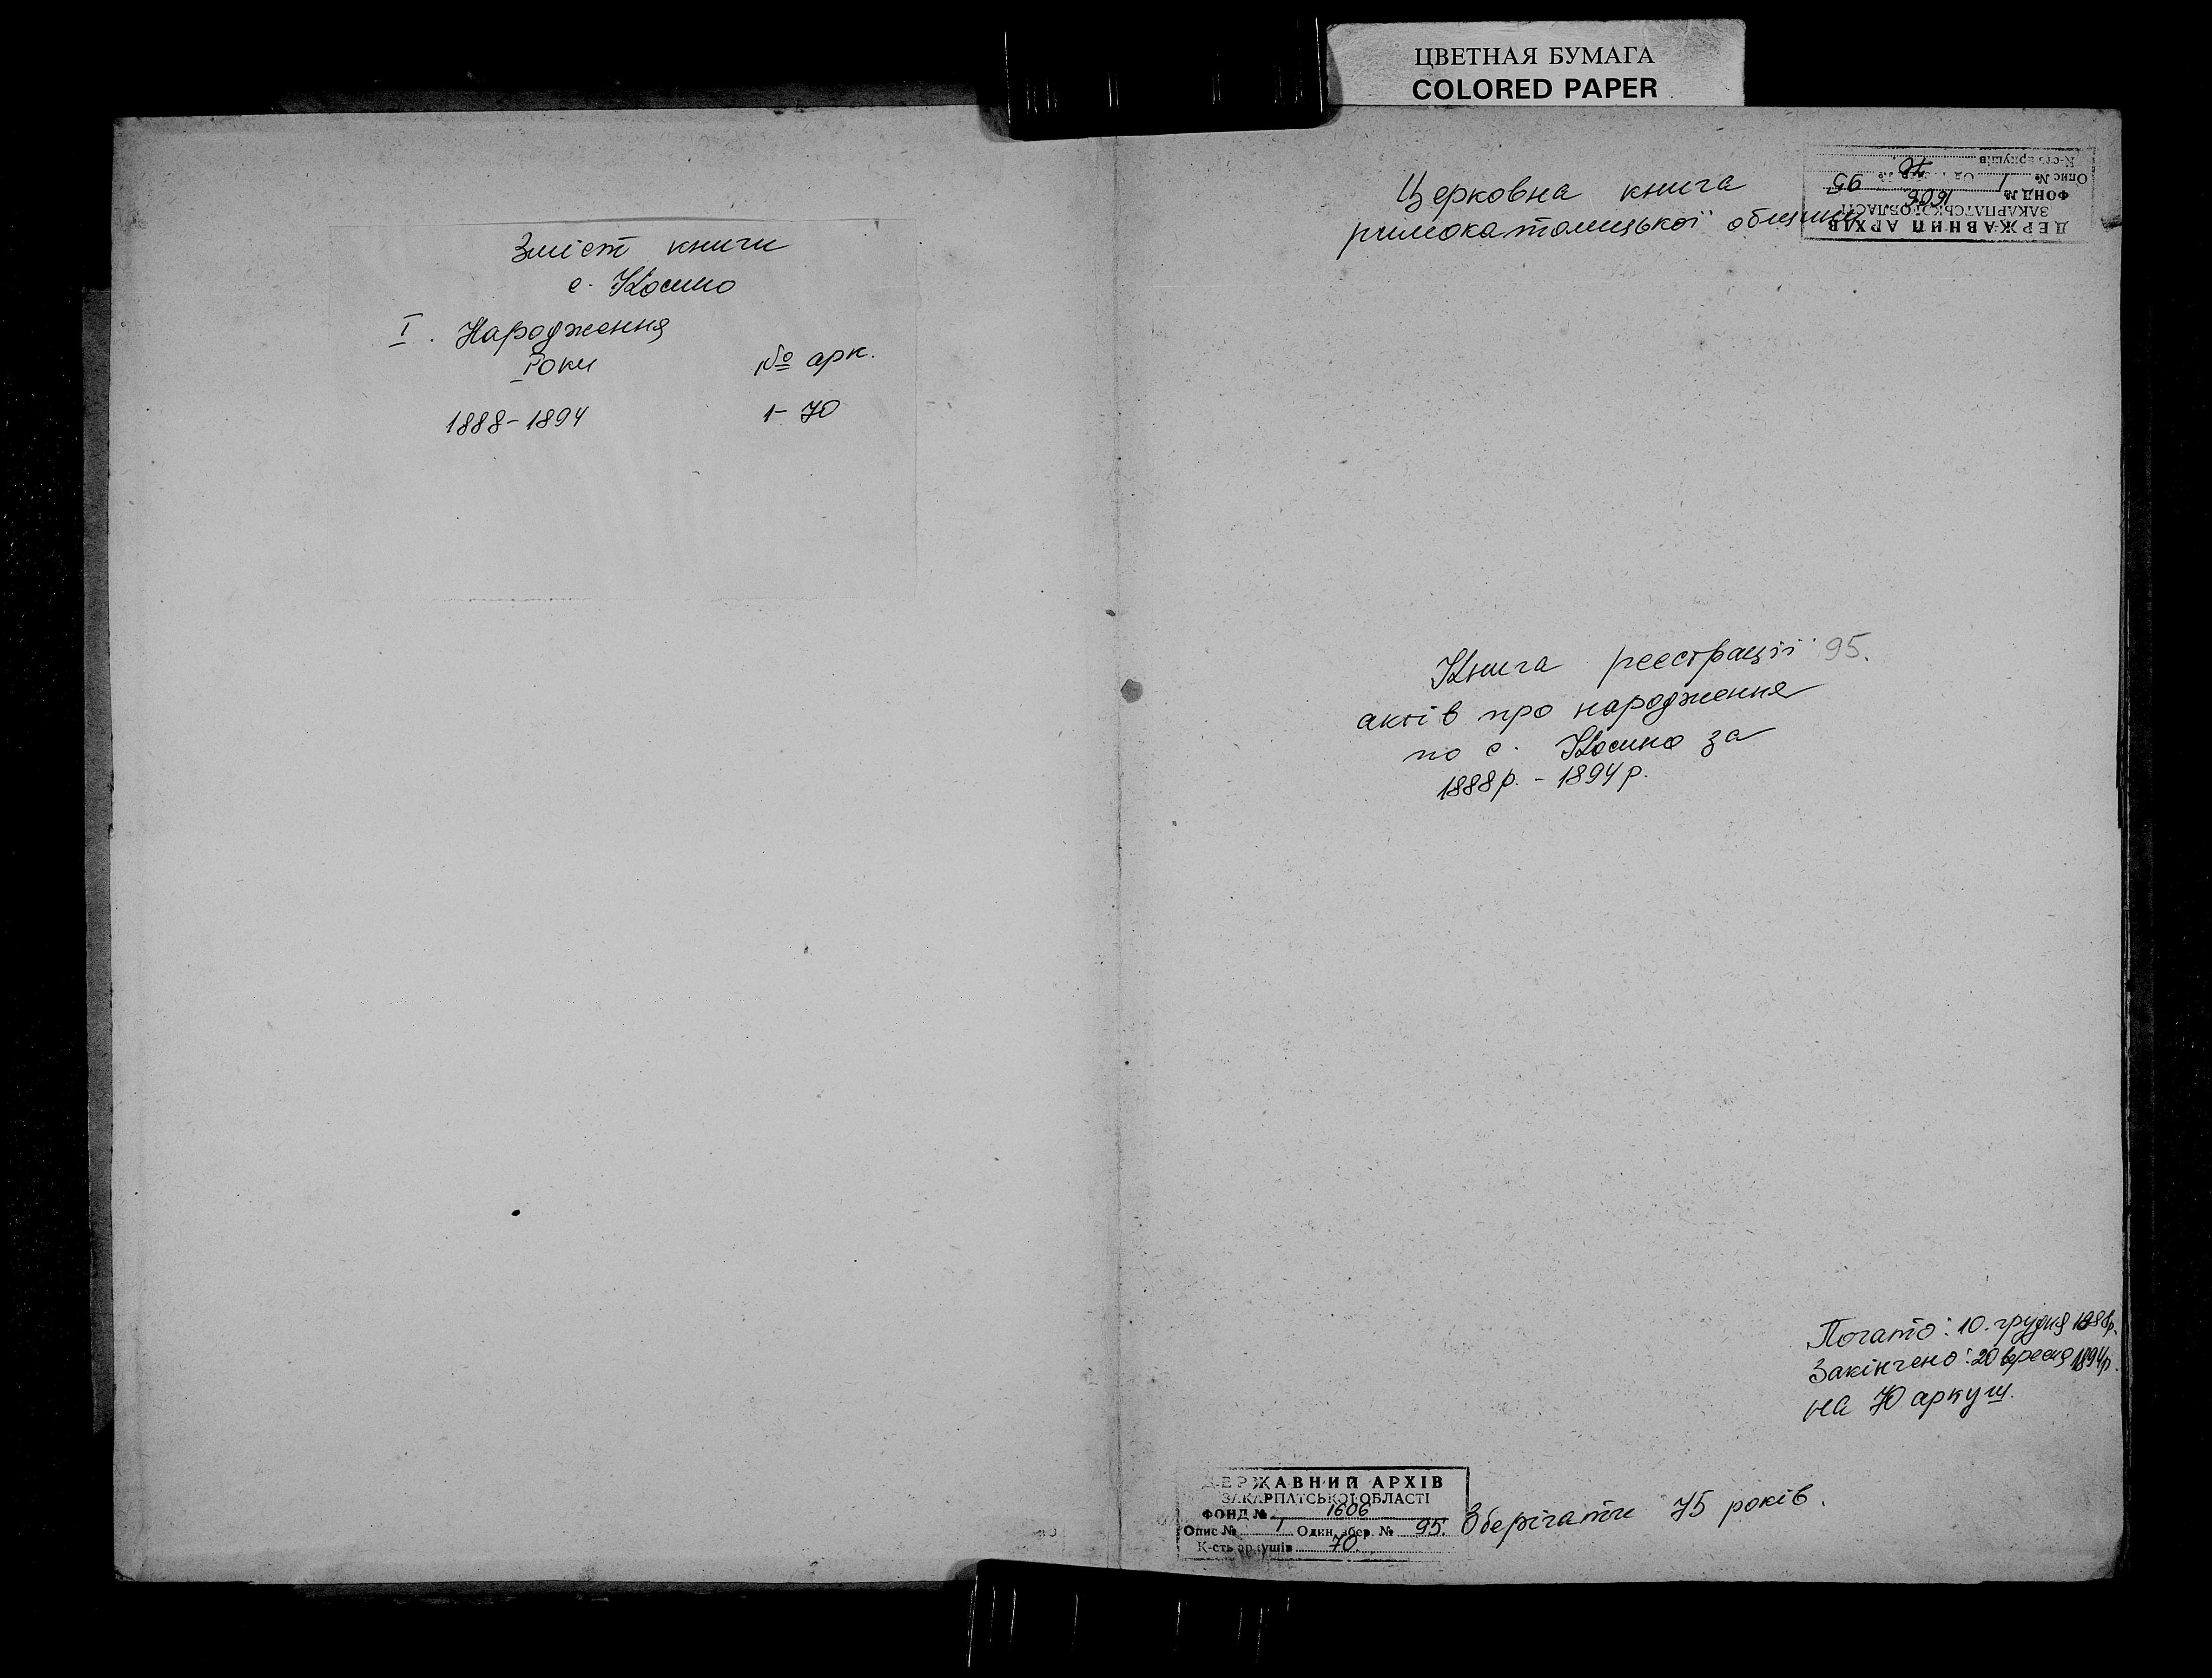 ЦВЕТНАЯ БУМАГА
COLORED PAPER
Зміст книги
с. Косино
I. Народження
Роки № арк.
1888-1894 1-70
Церковна книга
римокатолицької общини
ДЕРЖАВНИЙ АРХІВ
ЗАКАРПАТСЬКОЇ ОБЛАСТІ
ФОНД № 1606
Опис № 1 Од. зб. № 95
К-сть аркушів 70
Книга реєстрації 95.
актів про народження
по с. Косино за
1888р. - 1894р.
Почато: 10. грудня 1888р.
Закінчено: 20 вересня 1894р.
на 70 аркуш.
ДЕРЖАВНИЙ АРХІВ
ЗАКАРПАТСЬКОЇ ОБЛАСТІ
ФОНД № 1606
Опис № 1 Один. збер. № 95.
К-сть аркушів 70
Зберігати 75 років.